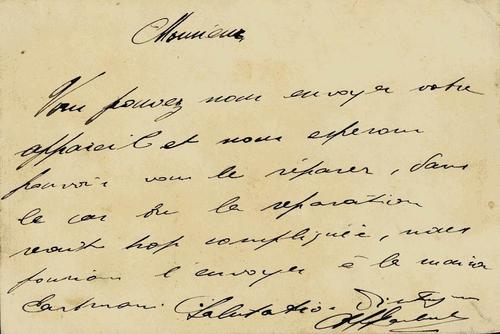 Monsieur,
Vous pouvez nous envoyer votre
appareil et nous esperons
pouvoir vous le réparer, dans
le cas ou la reparation
serait trop compliquée, nous
pourions l'envoyer à la maison
Salutations